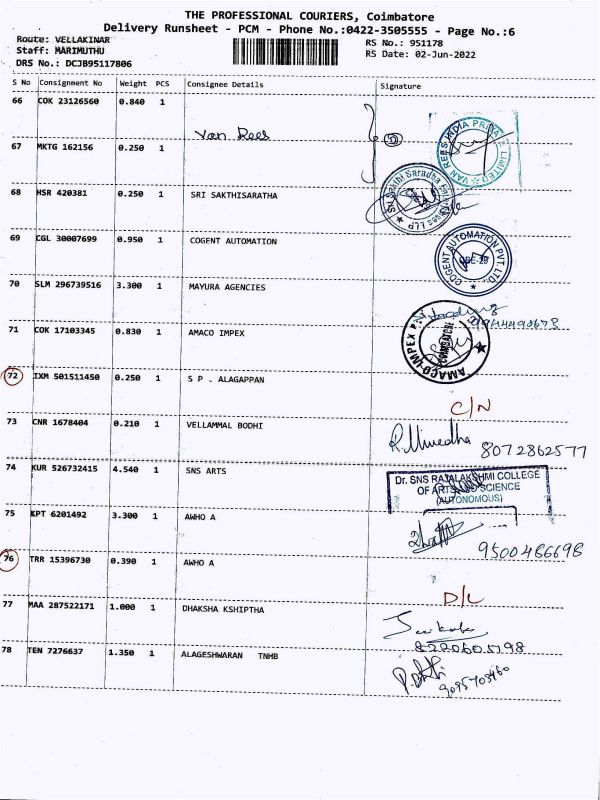 THE PROFESSIONAL COURIERS, Coimbatore
Delivery Runsheet - PCM - Phone No.:0422-3505555 - Page No.:6
Route: VELLAKINAR
RS No.: 951178
Staff: MARIMUTHU
RS Date: 02-Jun-2022
DRS No.: DCJB95117806
S No Consignment No Weight PCS Consignee Details Signature
66 COK 23126560 0.840 1
Van Rees
VAN REES INDIA PRIVATE LIMITED
67 MKTG 162156 0.250 1
68 HSR 420381 0.250 1 SRI SAKTHISARATHA
69 CGL 30007699 0.950 1 COGENT AUTOMATION
COGENT AUTOMATION PVT LTD
70 SLM 296739516 3.300 1 MAYURA AGENCIES
71 COK 17103345 0.830 1 AMACO IMPEX
AMACO IMPEX
72 IXM 501511450 0.250 1 S P . ALAGAPPAN
C/N
73 CNR 1678404 0.210 1 VELLAMMAL BODHI
8072862577
74 KUR 526732415 4.540 1 SNS ARTS
Dr. SNS RAJALAKSHMI COLLEGE
OF ARTS AND SCIENCE
(AUTONOMOUS)
75 KPT 6201492 3.300 1 AWHO A
9500466698
76 TRR 15396730 0.390 1 AWHO A
D/L
77 MAA 287522171 1.000 1 DHAKSHA KSHIPTHA
8220605798
78 TEN 7276637 1.350 1 ALAGESHWARAN TNHB